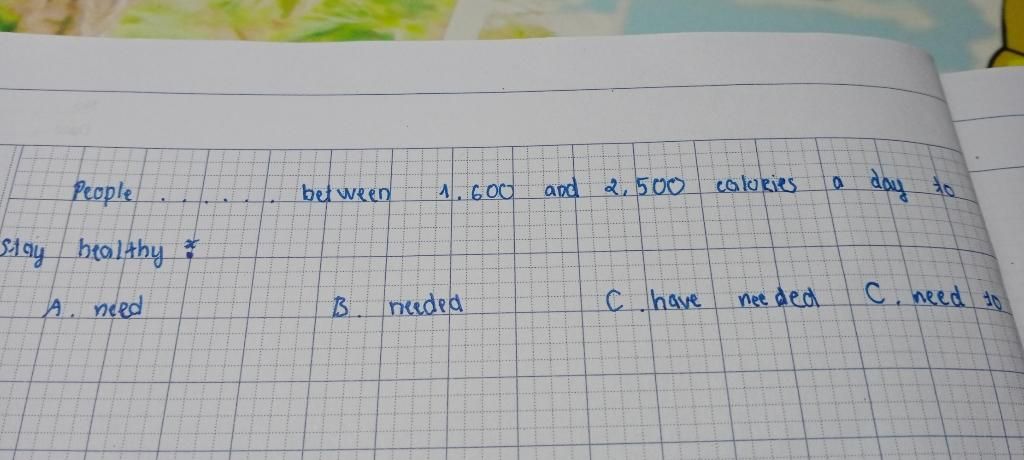 People . . . . . . between 1.600 and 2.500 calories a day to
stay healthy
A. need B. needed C. have needed C. need to